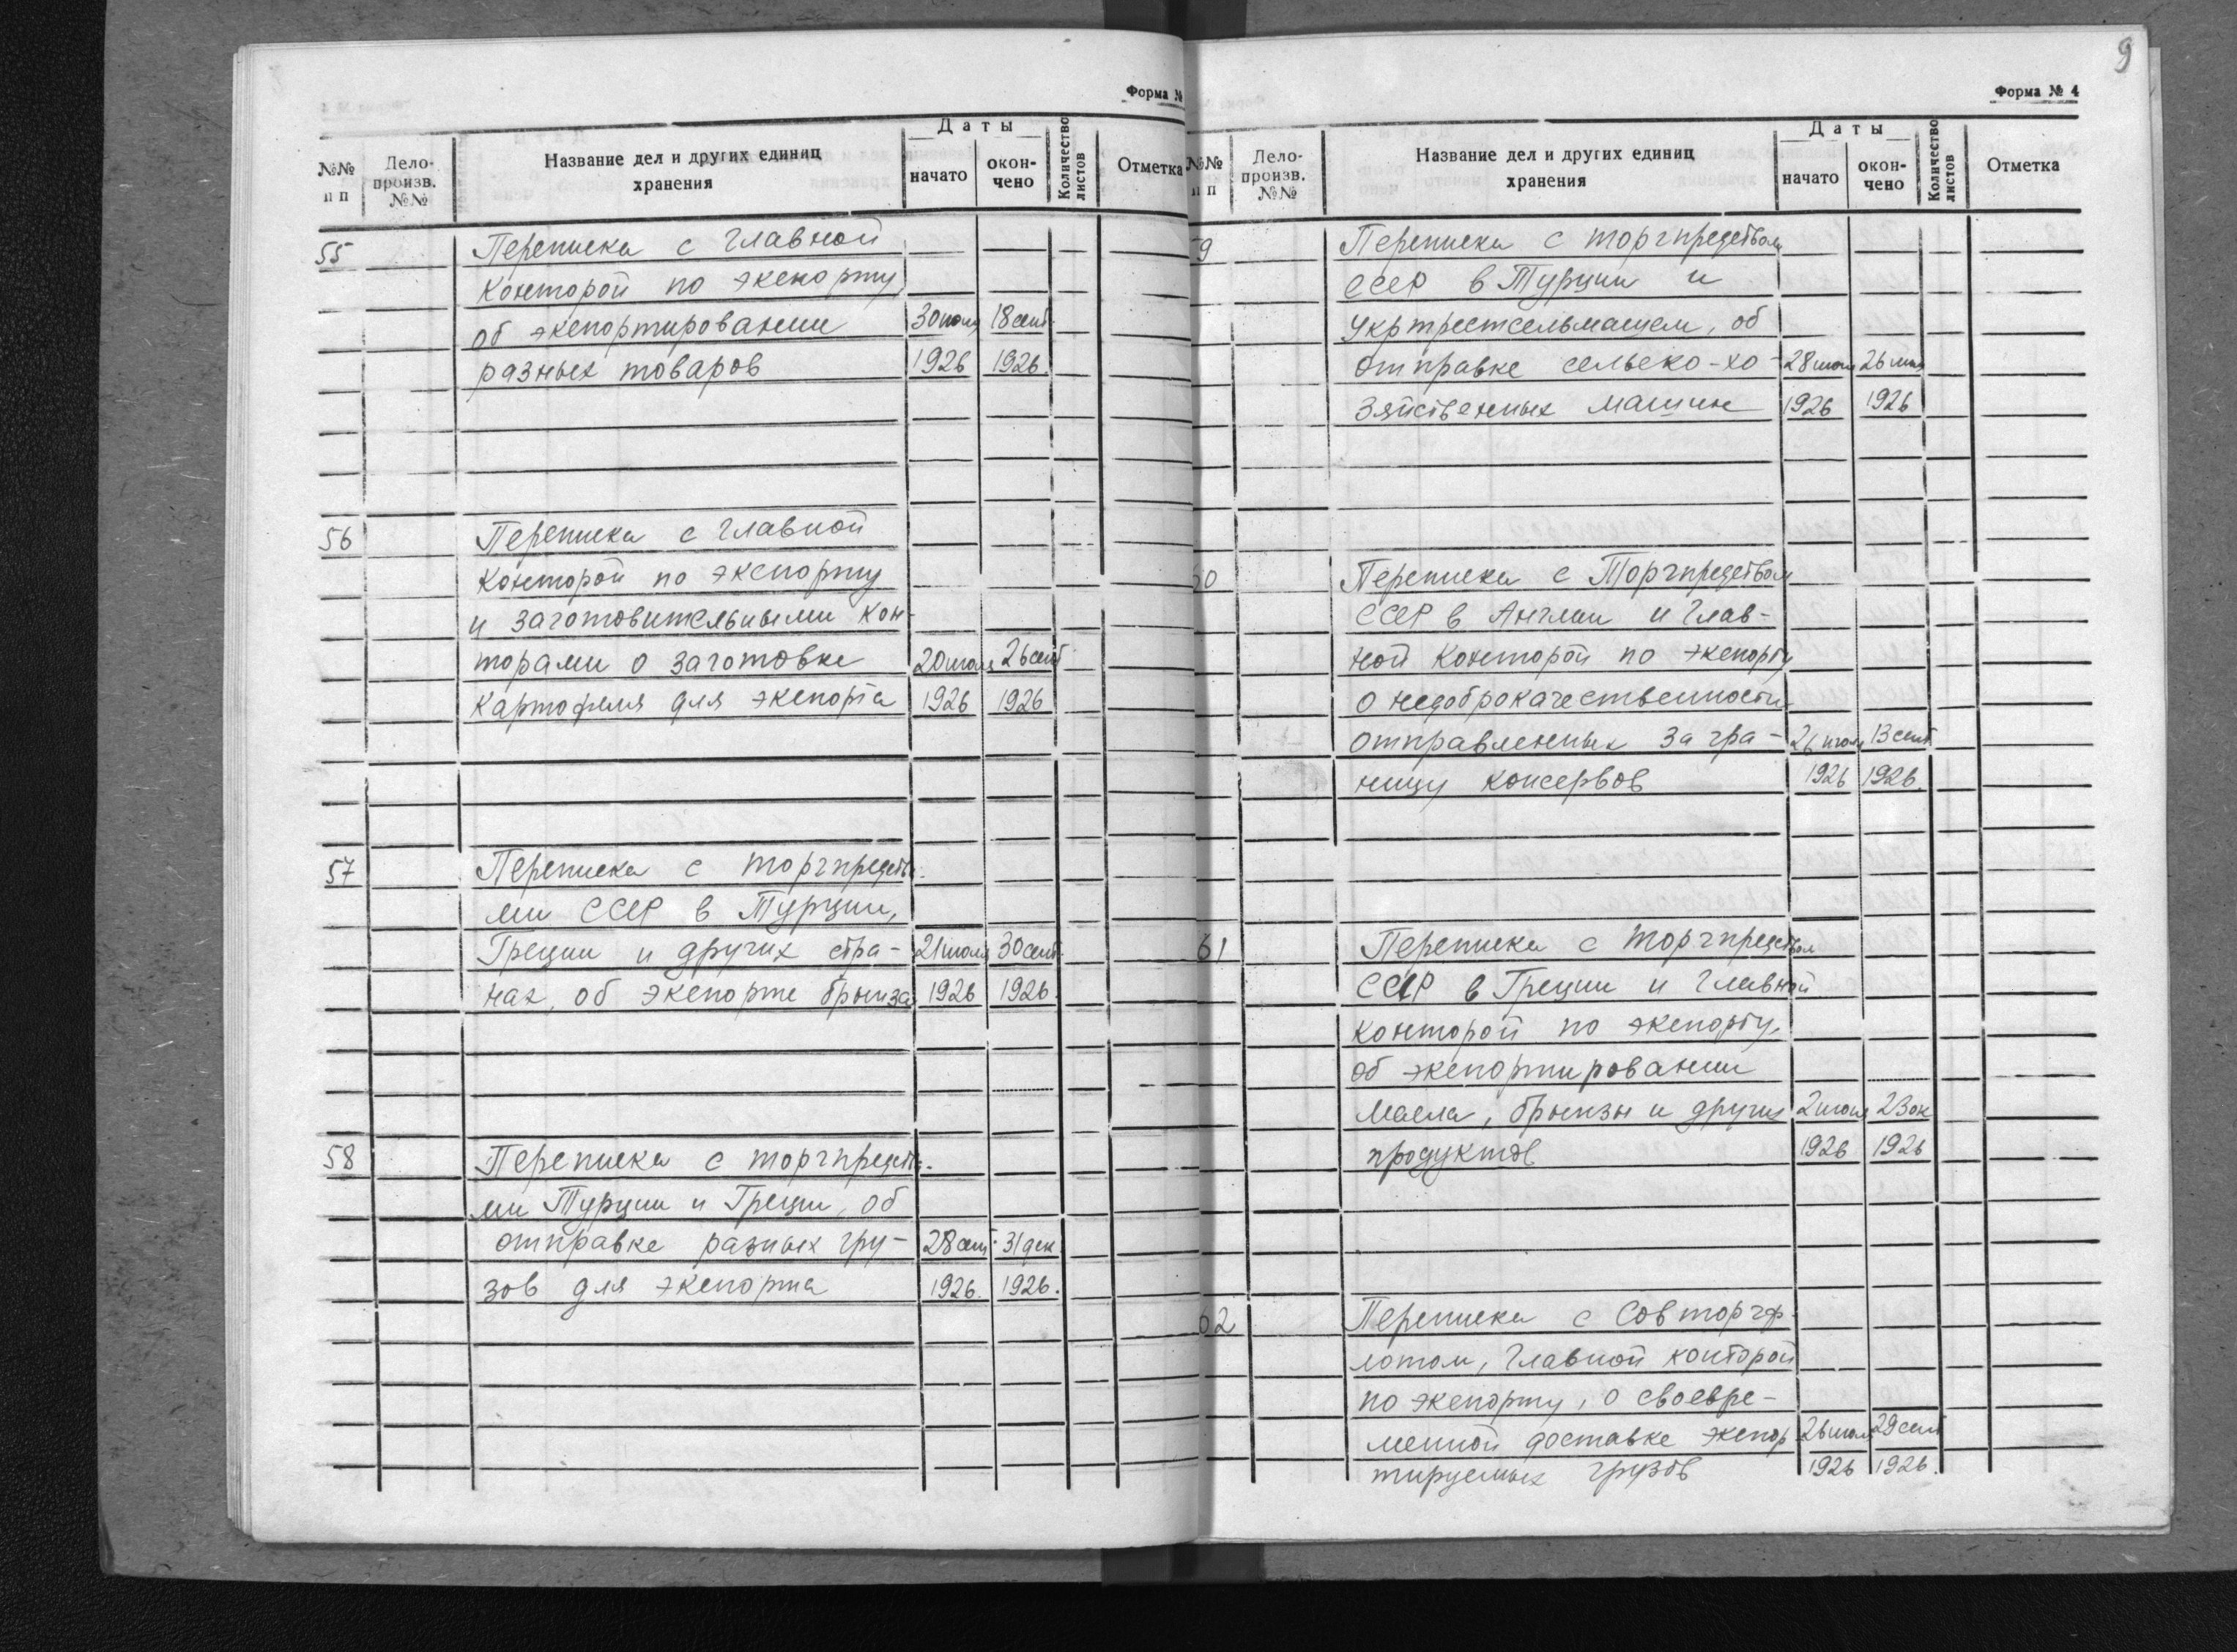 Форма №
Даты
№№ п п
Дело- произв. №№
Название дел и других единиц хранения
начато
окон- чено
Количество листов
Отметка
55 Переписка с главной
конторой по экспорту
об экспортировании 30 июля 18 сент.
разных товаров 1926 1926.
56 Переписка с главной
конторой по экспорту
и заготовительными кон-
торами о заготовке 20 июля 26 сент
картофеля для экспорта 1926 1926
57 Переписка с торгпредства-
ми СССР в Турции,
Греции и других стра- 21 июля 30 сент.
нах, об экспорте брынза 1926 1926.
58 Переписка с торгпредства-
ми Турции и Греции, об
отправке разных гру- 28 сент. 31 дек.
зов для экспорта 1926. 1926.
9
Форма № 4
Даты
№№ п п
Дело- произв. №№
Название дел и других единиц хранения
начато
окон- чено
Количество листов
Отметка
9 Переписка с торгпредством
СССР в Турции и
Укртрестсельмашем, об
отправке сельско-хо- 28 26
зяйственных машин 1926 1926
60 Переписка с Торгпредством
СССР в Англии и Глав-
ной конторой по экспорту
о недоброкачественности
отправленных за гра- 26 июля 13 сент.
ницу консервов 1926 1926.
61 Переписка с Торгпредством
СССР в Греции и Главной
конторой по экспорту,
об экспортировании
масла, брынзы и других 2 июля 23 ок
продуктов 1926 1926
62 Переписка с Совторгф-
лотом, Главной конторой
по экспорту, о своевре-
менной доставке экспор 26 июля 29 сент
тируемых грузов 1926 1926.